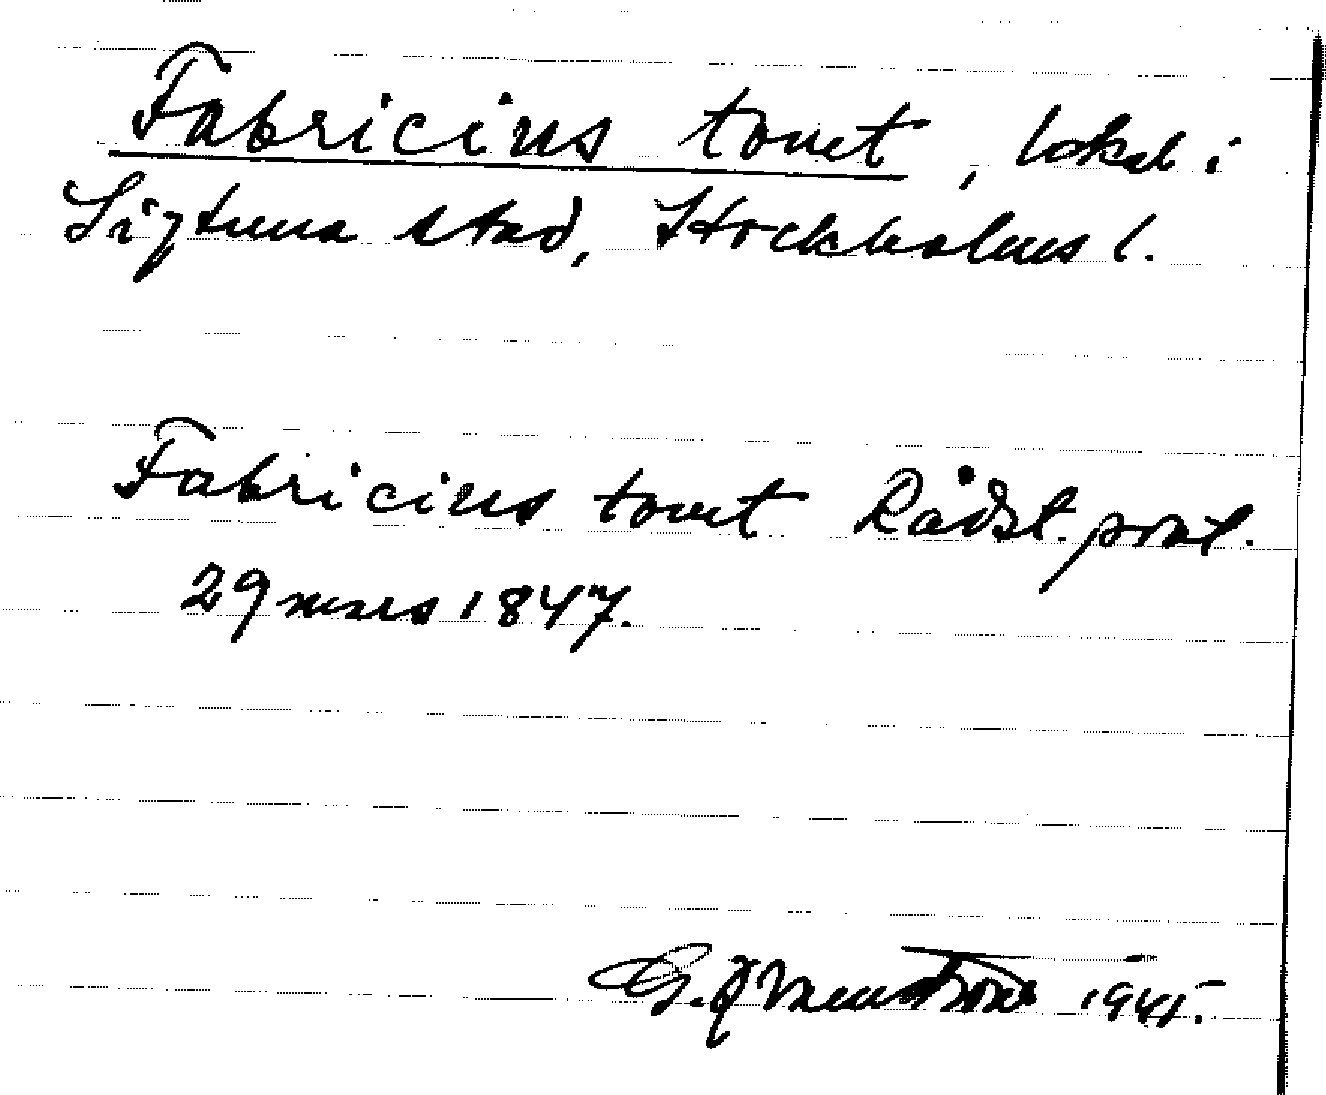 Fabricius tomt, lokal i
Sigtuna stad, Stockholms l.
Fabricius tomt Rådst. prot.
29 mars 1847.
1945.